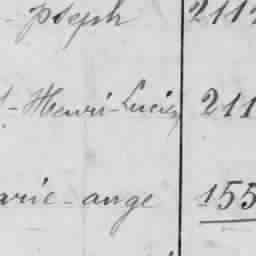 Joseph 211
- Henri-Lucien 211
arie-ange 155